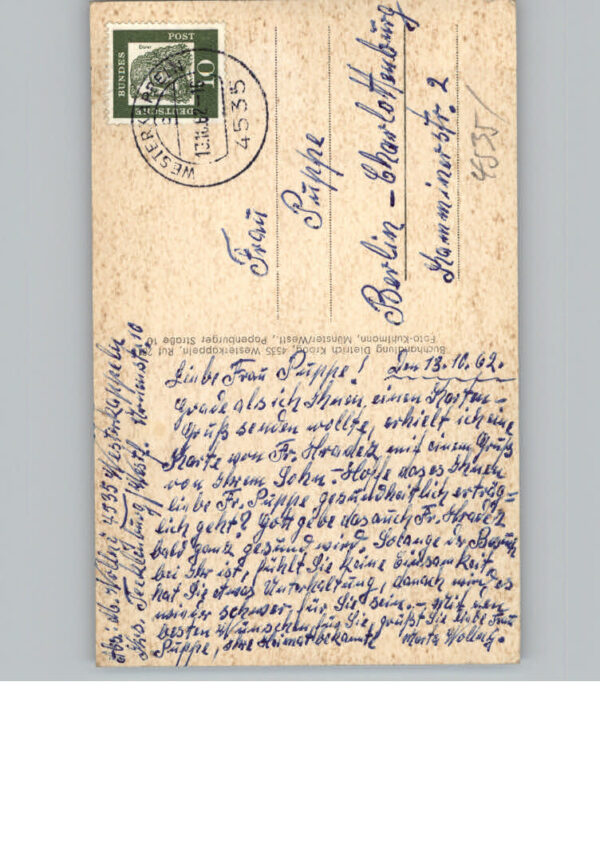 Dürer
DEUTSCHE
BUNDES
POST
10
WESTERKAPPELN
13.10.62
4535
Frau
Puppe
Berlin - Charlottenburg
Kamminerstr. 2
4535
Buchhandlung Dietrich Kroog, 4535 Westerkappeln, Ruf
Foto-Kuhlmann, Münster/Westf., Papenburger Straße 16
Abs. M. Wollny 4535 Westerkappeln
Krs. Tecklenburg/Westf. 10
Den 13.10.62.
Liebe Frau Puppe!
Grade als ich Ihnen einen Karten-
Gruß senden wollte, erhielt ich eine
Karte von Fr. Hradetz mit einem Gruß
von Ihrem Sohn. - Hoffe das es Ihnen
liebe Fr. Puppe gesundheitlich erträg=
lich geht? Gott gebe das auch Fr. Hradetz
bald ganz gesund wird. Solange der Besuch
bei Ihr ist, fühlt Sie keine Einsamkeit
hat Sie etwas Unterhaltung, danach wird es
wieder schwer für Sie sein. - Mit den
besten Wünschen für Sie, grüßt Sie liebe Frau
Puppe, ihre Heimatbekannte Wollny.